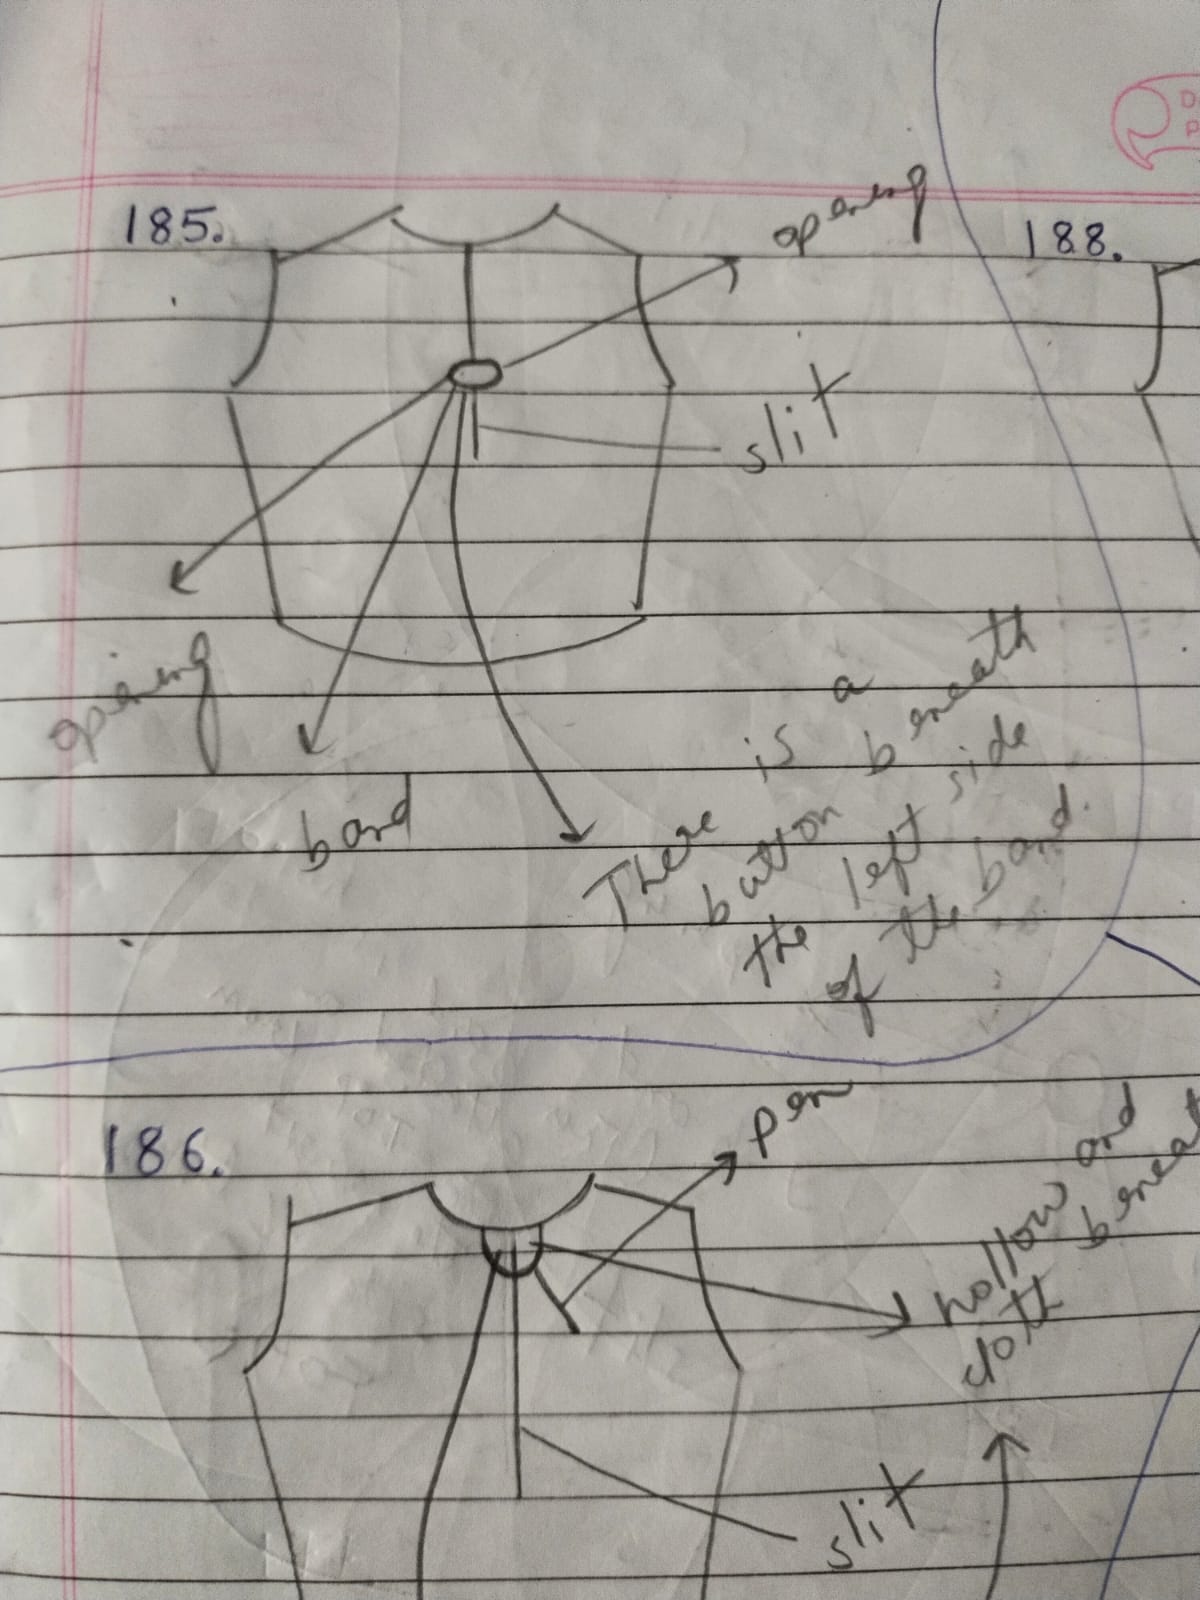 185.
opening
188.
slit
opening
band
There is a
button beneath
the left side
of the band.
186.
pen
hollow and
beneat
cloth
slit